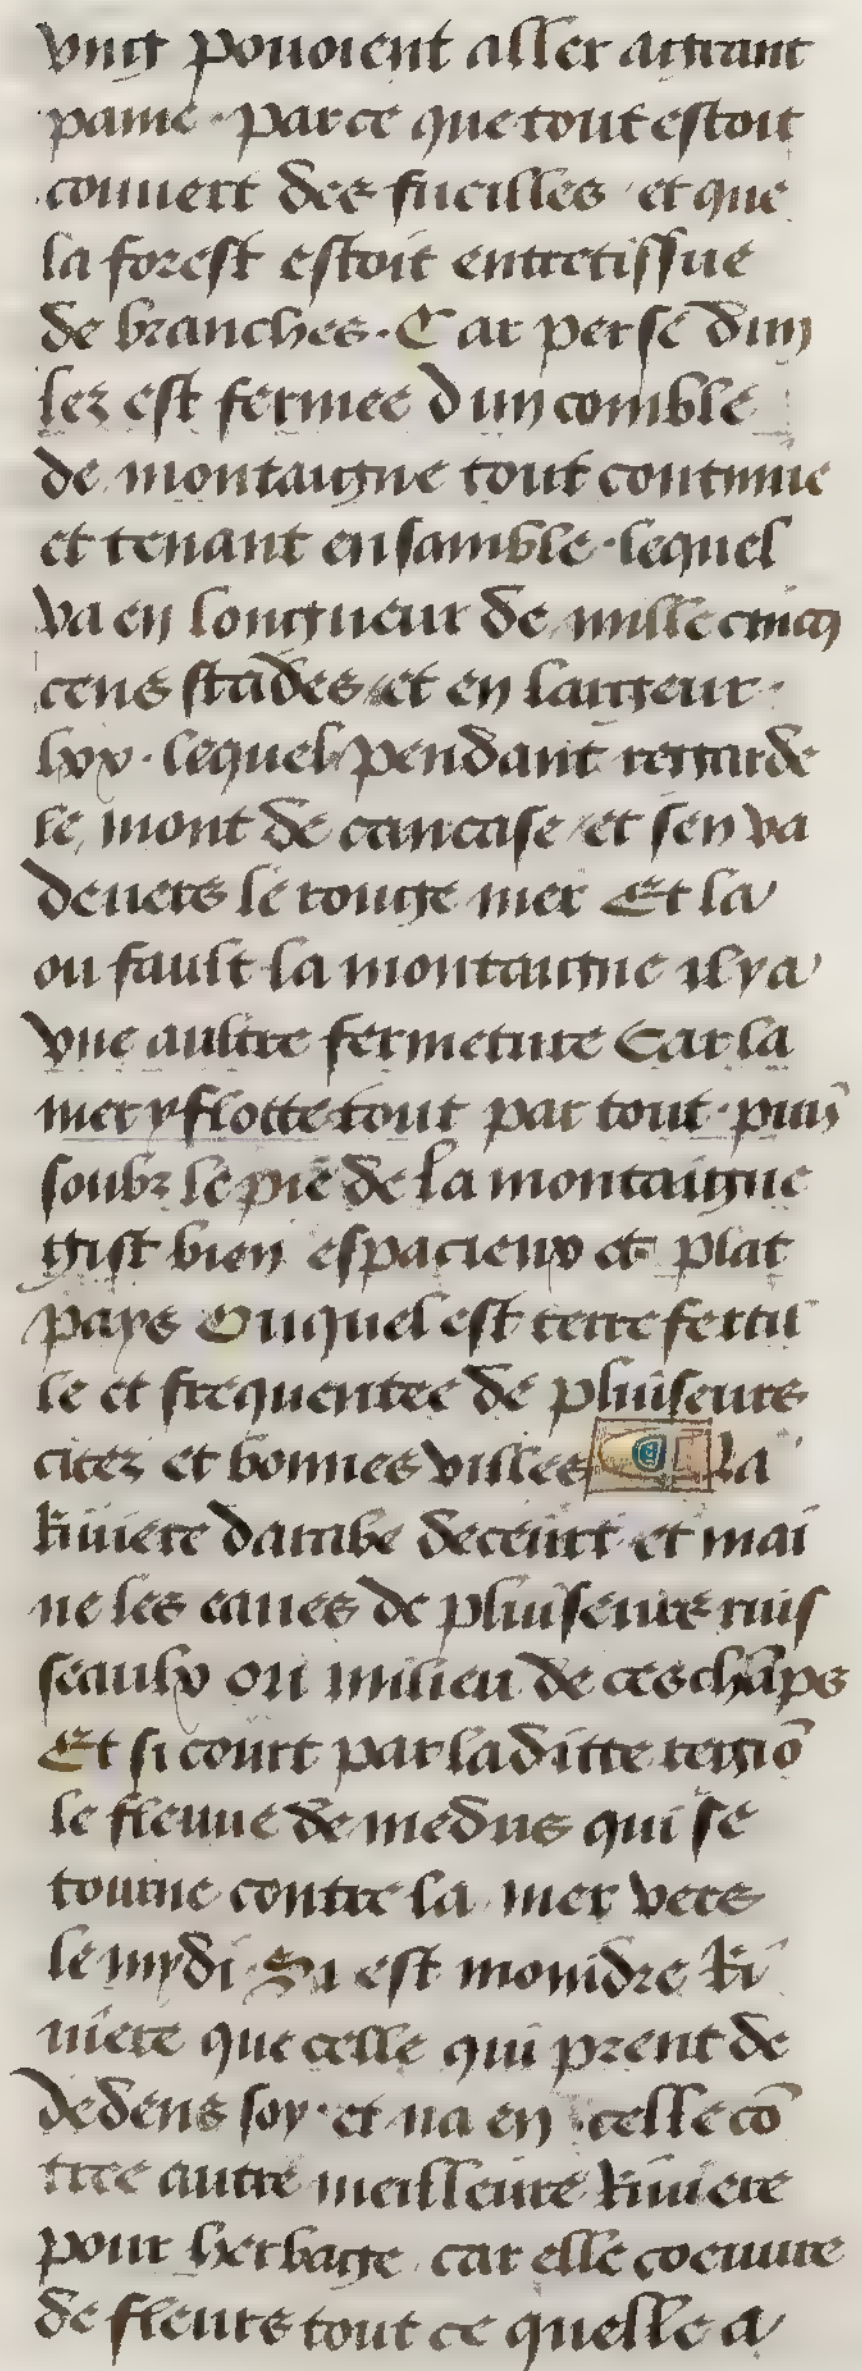 vng pouoient aller a grant
paine · parce que tout estoit
couuert des fueilles et que
la forest estoit entretissue
de branches · Car perse dun
lez est fermee dun comble
de montaigne tout continue
et tenant ensamble · lequel
va en longueur de mille cincq
cens stades et en largeur ·
lxx · lequel pendant regarde
le mont de caucase et sen va
deuers le rouge mer Et la
ou fault la montaigne il y a
vne aultre fermeture Car la
mer y flotte tout par tout · puis
soubz le pie de la montaigne
gist bien espacieux et plat
pays Ouquel est terre ferti
le et frequentee de pluiseurs
citez et bonnes villes La
Riuiere darabe deceurt et mai
ne les eaues de pluiseurs ruis
seaulx ou milieu de ces chāps
Et si court par laditte regiō
le fleuue de medus qui se
tourne contre la mer vers
le mydi · Si est moindre Ri
uiere que celle qui prent de
dedens soy · et na en celle cō
tree autre meilleure Riuiere
pour herbage car elle coeuure
de fleurs tout ce quelle a